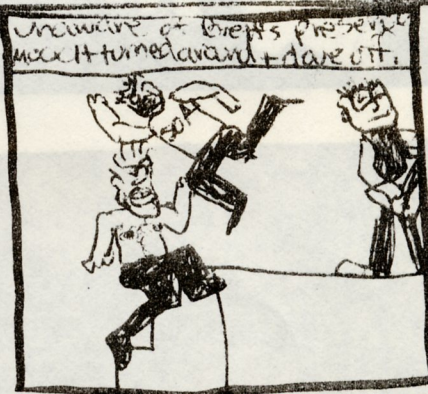 Unaware of Brents presence
turned around + dove off.